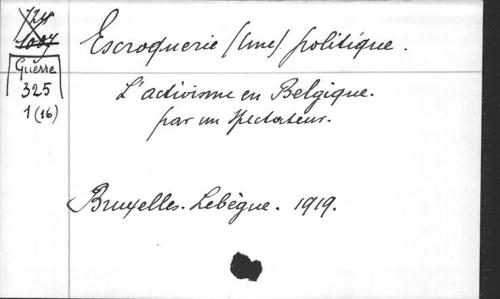 724
1087
Guerre
325
1(16)
Escroquerie (Une) politique.
L'activisme en Belgique.
par un Spectateur.
Bruxelles. Lebègue. 1919.